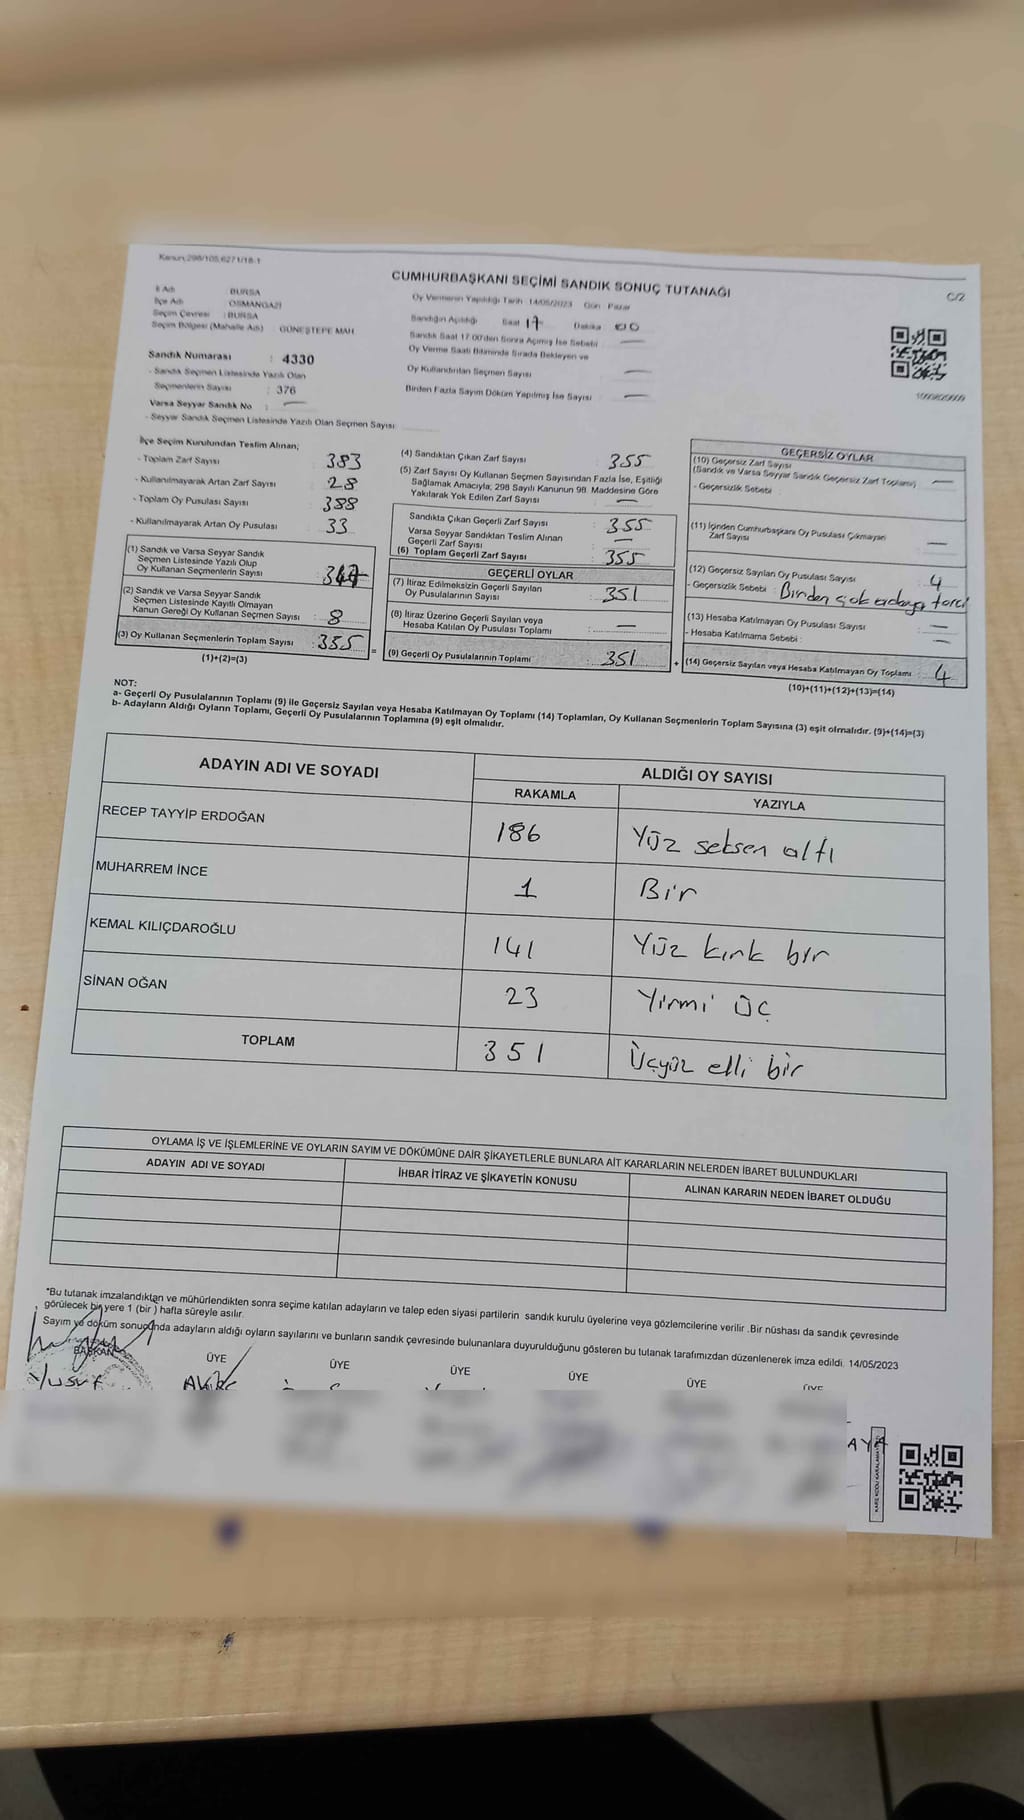 Kanun;298/105,6271/18-1
CUMHURBAŞKANI SEÇİMİ SANDIK SONUÇ TUTANAĞI
C/2
İl Adı : BURSA
İlçe Adı : OSMANGAZİ
Seçim Çevresi : BURSA
Seçim Bölgesi (Mahalle Adı) : GÜNEŞTEPE MAH.
Sandık Numarası : 4330
- Sandık Seçmen Listesinde Yazılı Olan
Seçmenlerin Sayısı : 376
Varsa Seyyar Sandık No : —
- Seyyar Sandık Seçmen Listesinde Yazılı Olan Seçmen Sayısı:
Oy Vermenin Yapıldığı Tarih 14/05/2023 Gün Pazar
Sandığın Açıldığı Saat 17 Dakika 00
Sandık Saat 17.00'den Sonra Açılmış İse Sebebi —
Oy Verme Saati Bitiminde Sırada Bekleyen ve
Oy Kullandırılan Seçmen Sayısı —
Birden Fazla Sayım Döküm Yapılmış İse Sayısı —
İlçe Seçim Kurulundan Teslim Alınan;
- Toplam Zarf Sayısı 383
- Kullanılmayarak Artan Zarf Sayısı 28
- Toplam Oy Pusulası Sayısı 388
- Kullanılmayarak Artan Oy Pusulası 33
(1) Sandık ve Varsa Seyyar Sandık
Seçmen Listesinde Yazılı Olup
Oy Kullanan Seçmenlerin Sayısı
(2) Sandık ve Varsa Seyyar Sandık
Seçmen Listesinde Kayıtlı Olmayan
Kanun Gereği Oy Kullanan Seçmen Sayısı : 8
(3) Oy Kullanan Seçmenlerin Toplam Sayısı : 355 =
(1)+(2)=(3)
(4) Sandıktan Çıkan Zarf Sayısı : 355
(5) Zarf Sayısı Oy Kullanan Seçmen Sayısından Fazla İse, Eşitliği
Sağlamak Amacıyla; 298 Sayılı Kanunun 98. Maddesine Göre
Yakılarak Yok Edilen Zarf Sayısı : —
Sandıkta Çıkan Geçerli Zarf Sayısı : 355
Varsa Seyyar Sandıktan Teslim Alınan
Geçerli Zarf Sayısı : —
(6) Toplam Geçerli Zarf Sayısı : 355
GEÇERLİ OYLAR
(7) İtiraz Edilmeksizin Geçerli Sayılan
Oy Pusulalarının Sayısı : 351
(8) İtiraz Üzerine Geçerli Sayılan veya
Hesaba Katılan Oy Pusulası Toplamı : —
(9) Geçerli Oy Pusulalarının Toplamı : 351 +
GEÇERSİZ OYLAR
(10) Geçersiz Zarf Sayısı
(Sandık ve Varsa Seyyar Sandık Geçersiz Zarf Toplamı) —
- Geçersizlik Sebebi :
(11) İçinden Cumhurbaşkanı Oy Pusulası Çıkmayan
Zarf Sayısı : —
(12) Geçersiz Sayılan Oy Pusulası Sayısı : 4
- Geçersizlik Sebebi : Birden çok adaya terci
(13) Hesaba Katılmayan Oy Pusulası Sayısı : —
- Hesaba Katılmama Sebebi : —
(14) Geçersiz Sayılan veya Hesaba Katılmayan Oy Toplamı : 4
(10)+(11)+(12)+(13)=(14)
NOT:
a- Geçerli Oy Pusulalarının Toplamı (9) ile Geçersiz Sayılan veya Hesaba Katılmayan Oy Toplamı (14) Toplamları, Oy Kullanan Seçmenlerin Toplam Sayısına (3) eşit olmalıdır. (9)+(14)=(3)
b- Adayların Aldığı Oyların Toplamı, Geçerli Oy Pusulalarının Toplamına (9) eşit olmalıdır.
ADAYIN ADI VE SOYADI ALDIĞI OY SAYISI
RAKAMLA YAZIYLA
RECEP TAYYİP ERDOĞAN 186 Yüz seksen altı
MUHARREM İNCE 1 Bir
KEMAL KILIÇDAROĞLU 141 Yüz kırk bir
SİNAN OĞAN 23 Yirmi üç
TOPLAM 351 Üçyüz elli bir
OYLAMA İŞ VE İŞLEMLERİNE VE OYLARIN SAYIM VE DÖKÜMÜNE DAİR ŞİKAYETLERLE BUNLARA AİT KARARLARIN NELERDEN İBARET BULUNDUKLARI
ADAYIN ADI VE SOYADI İHBAR İTİRAZ VE ŞİKAYETİN KONUSU ALINAN KARARIN NEDEN İBARET OLDUĞU
*Bu tutanak imzalandıktan ve mühürlendikten sonra seçime katılan adayların ve talep eden siyasi partilerin sandık kurulu üyelerine veya gözlemcilerine verilir .Bir nüshası da sandık çevresinde
görülecek bir yere 1 (bir ) hafta süreyle asılır.
Sayım ve döküm sonucunda adayların aldığı oyların sayılarını ve bunların sandık çevresinde bulunanlara duyurulduğunu gösteren bu tutanak tarafımızdan düzenlenerek imza edildi. 14/05/2023
BAŞKAN ÜYE ÜYE ÜYE ÜYE ÜYE ÜYE
Yusuf